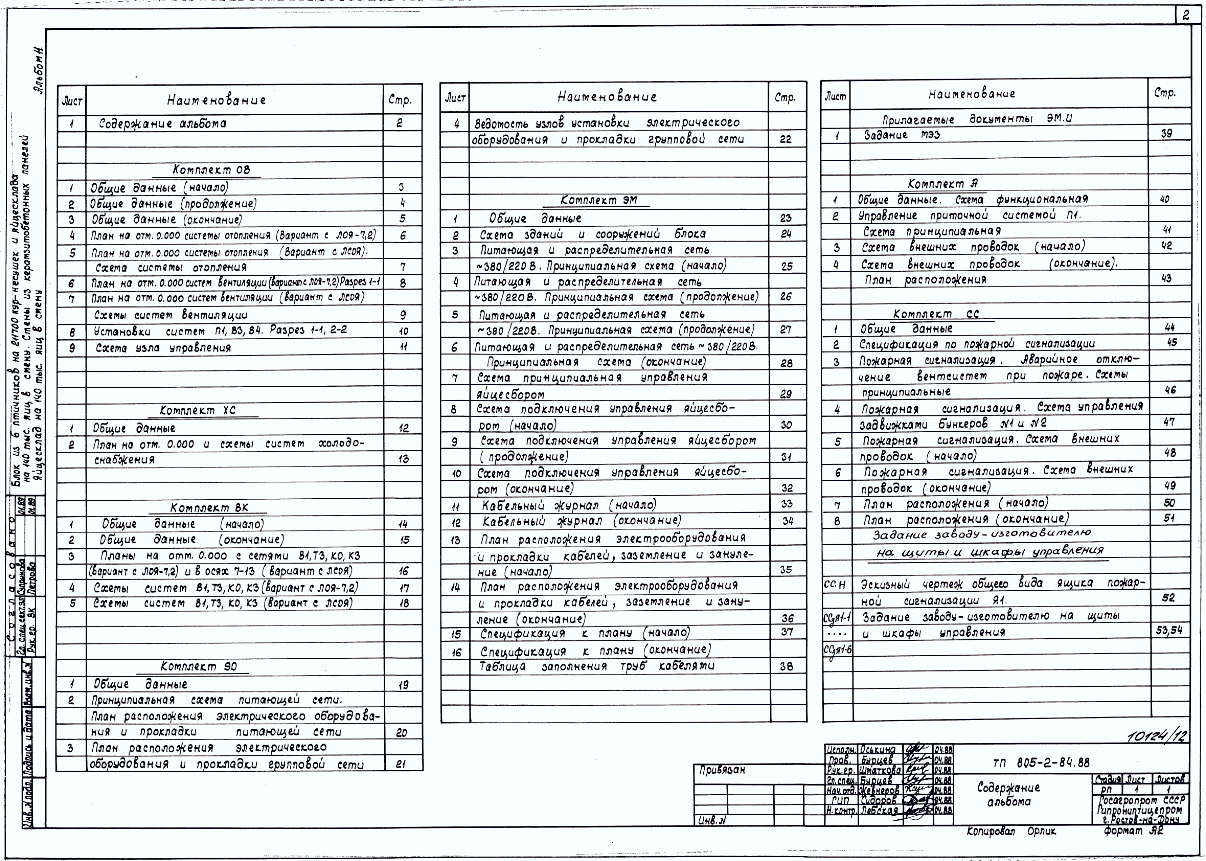 2
Альбом IV
Блок из 6 птичников на 24700 кур-несушек и яйцесклада
на 140 тыс. яиц в смену. Стены из керамзитобетонных панелей
Яйцесклад на 140 тыс. яиц в смену
Лист Наименование Стр.
1 Содержание альбома 2
Комплект ОВ
1 Общие данные (начало) 3
2 Общие данные (продолжение) 4
3 Общие данные (окончание) 5
4 План на отм. 0.000 системы отопления (Вариант с ЛОЯ-7,2) 6
5 План на отм. 0.000 системы отопления (Вариант с ЛСОЯ).
Схема системы отопления 7
6 План на отм. 0.000 систем вентиляции (Вариант с ЛОЯ-7,2) Разрез 1-1 8
7 План на отм. 0.000 систем вентиляции (Вариант с ЛСОЯ)
Схемы систем вентиляции 9
8 Установки систем П1, В3, В4. Разрез 1-1, 2-2 10
9 Схема узла управления 11
Комплект ХС
1 Общие данные 12
2 План на отм. 0.000 и схемы систем холодо-
снабжения 13
Комплект ВК
1 Общие данные (начало) 14
2 Общие данные (окончание) 15
3 Планы на отм. 0.000 с сетями В1, Т3, К0, К3
(вариант с ЛОЯ-7,2) и в осях 7-13 (вариант с ЛСОЯ) 16
4 Схемы систем В1, Т3, К0, К3 (вариант с ЛОЯ-7,2) 17
5 Схемы систем В1, Т3, К0, К3 (вариант с ЛСОЯ) 18
Комплект ЭО
1 Общие данные 19
2 Принципиальная схема питающей сети.
План расположения электрического оборудова-
ния и прокладки питающей сети 20
3 План расположения электрического
оборудования и прокладки групповой сети 21
Лист Наименование Стр.
4 Ведомость узлов установки электрического
оборудования и прокладки групповой сети 22
Комплект ЭМ
1 Общие данные 23
2 Схема зданий и сооружений блока 24
3 Питающая и распределительная сеть
~380/220 В. Принципиальная схема (начало) 25
4 Питающая и распределительная сеть
~380/220В. Принципиальная схема (продолжение) 26
5 Питающая и распределительная сеть
~380/220В. Принципиальная схема (продолжение) 27
6 Питающая и распределительная сеть ~380/220В.
Принципиальная схема (окончание) 28
7 Схема принципиальная управления
яйцесбором 29
8 Схема подключения управления яйцесбо-
ром (начало) 30
9 Схема подключения управления яйцесбором
(продолжение) 31
10 Схема подключения управления яйцесбо-
ром (окончание) 32
11 Кабельный журнал (начало) 33
12 Кабельный журнал (окончание) 34
13 План расположения электрооборудования
и прокладки кабелей, заземление и зануле-
ние (начало) 35
14 План расположения электрооборудования
и прокладки кабелей, заземление и зану-
ление (окончание) 36
15 Спецификация к плану (начало) 37
16 Спецификация к плану (окончание)
Таблица заполнения труб кабелями 38
Лист Наименование Стр.
Прилагаемые документы ЭМ.И
1 Задание МЭЗ 39
Комплект А
1 Общие данные. Схема функциональная 40
2 Управление приточной системой П1.
Схема принципиальная 41
3 Схема внешних проводок (начало) 42
4 Схема внешних проводок (окончание).
План расположения 43
Комплект СС
1 Общие данные 44
2 Спецификация по пожарной сигнализации 45
3 Пожарная сигнализация. Аварийное отклю-
чение вентсистем при пожаре. Схемы
принципиальные 46
4 Пожарная сигнализация. Схема управления
задвижками бункеров N1 и N2 47
5 Пожарная сигнализация. Схема внешних
проводок (начало) 48
6 Пожарная сигнализация. Схема внешних
проводок (окончание) 49
7 План расположения (начало) 50
8 План расположения (окончание) 51
Задание заводу-изготовителю
на щиты и шкафы управления
СС.Н Эскизный чертеж общего вида ящика пожар-
ной сигнализации Я1. 52
Задание заводу-изготовителю на щиты
.... и шкафы управления 53,54
10124/12
Согласовано
Гл. спец. сект. эл.
Рук. гр. ВК Петрова
01.89
01.89
Инв. N подл. Подпись и дата Взам. инв. N
Привязан
Инв. N
Исполн. Оськина 04.88
Пров. Бурцев 04.88
Рук. гр. Шматкова 04.88
Гл. спец. Бурцев 04.88
Нач. отд. Жевнеров 04.88
ГИП Сидоров 04.88
Н. контр. Лебская 04.88
ТП 805-2-84.88
Содержание
альбома
Стадия Лист Листов
РП 1 1
Госагропром СССР
Гипрониптицепром
г. Ростов-на-Дону
Копировал Орлик Формат А2